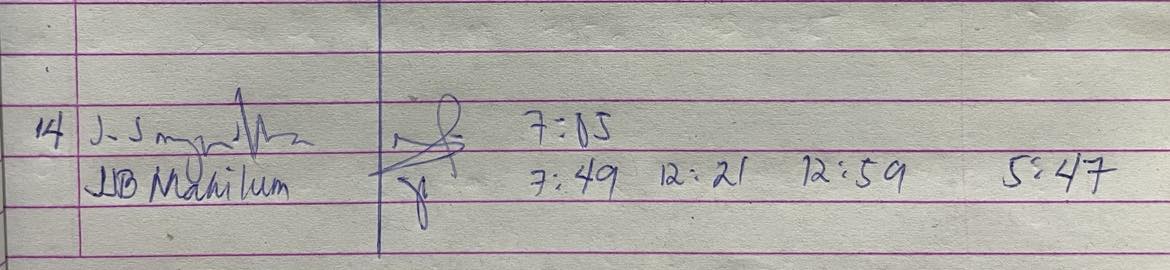 14 7:05
JB Mahilum 7:49 12:21 12:59 5:47